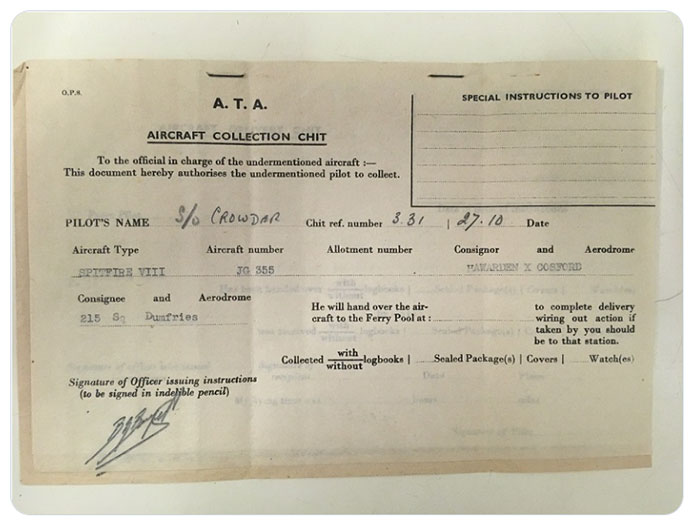 O.P.S.
A. T. A.
SPECIAL INSTRUCTIONS TO PILOT
AIRCRAFT COLLECTION CHIT
To the official in charge of the undermentioned aircraft :—
This document hereby authorises the undermentioned pilot to collect.
PILOT'S NAME S/o CROWDAR Chit ref. number 3.31 | 27.10 Date
Aircraft Type Aircraft number Allotment number Consignor and Aerodrome
SPITFIRE VIII JG 355 HAWARDEN X COSFORD
Consignee and Aerodrome
215 Sq Dumfries
He will hand over the air-
craft to the Ferry Pool at :
to complete delivery
wiring out action if
taken by you should
be to that station.
Collected with/without logbooks | Sealed Package(s) | Covers | Watch(es)
Signature of Officer issuing instructions
(to be signed in indelible pencil)